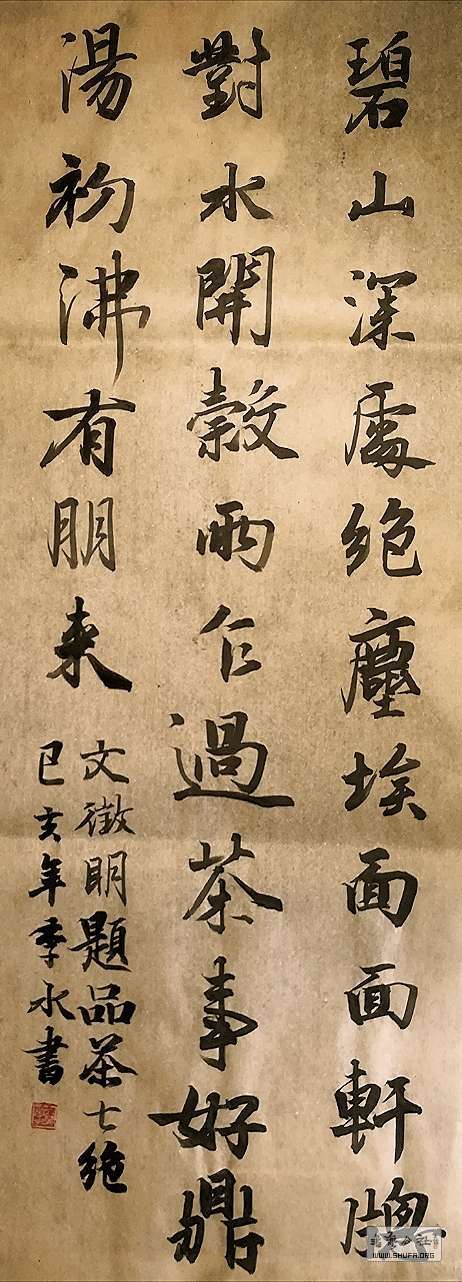 碧山深處絶塵埃面面軒牕
對水開穀雨乍過茶事好鼎
湯初沸有朋来
文徵明題品茶七絶
己亥年季水書
WWW.SHUFA.ORG